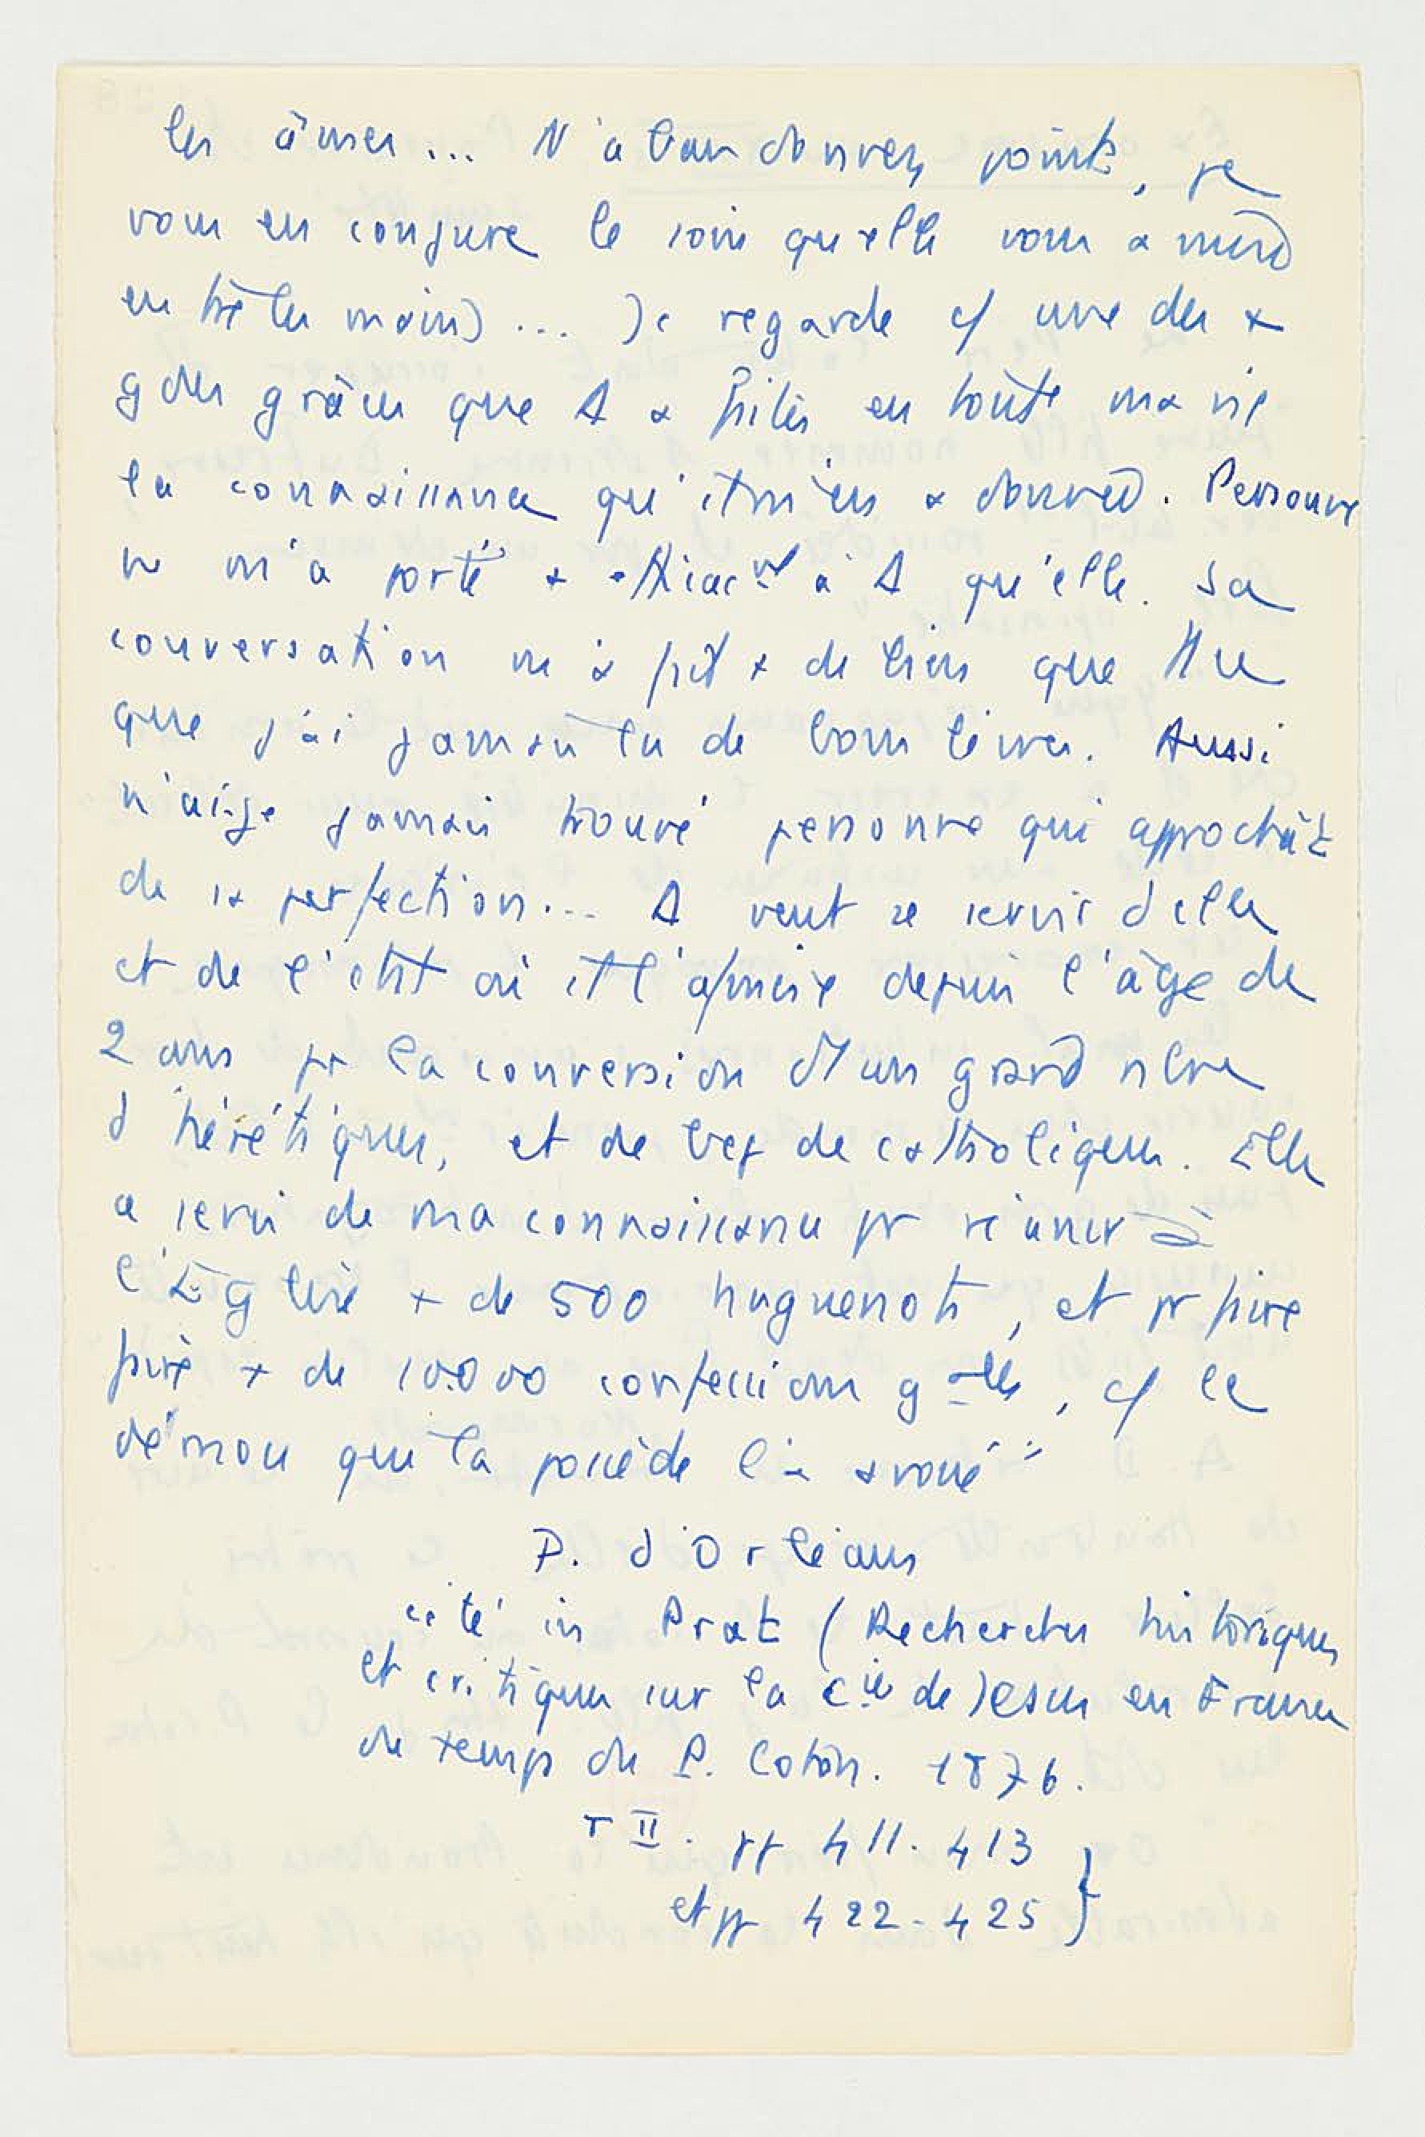 les âmes... N'abandonnez point, je
vous en conjure le soin qu'elle vous a mis
entre les mains... Je regarde c/ une des +
gdes grâces que Δ a faites en toute ma vie
la connaissance qu'il m'en a donnée. Personne
ne m'a porté + à Δ qu'elle. Sa
conversation m'a fait + de bien que
que j'ai jamais lu de bons livres. Aussi
n'ai-je jamais trouvé personne qui approchât
de sa perfection... Δ veut se servir d'elle
et de l'état où il l'a mise depuis l'âge de
2 ans pr la conversion d'un grand nbre
d'hérétiques, et de bcp de catholiques. Elle
a servi de ma connaissance pr réunir à
l'Église + de 500 huguenots, et pr faire
faire + de 10.000 confessions gales, c/ le
démon qui la possède l'a avoué"
P. d'Orléans
cité in Prat (Recherches historiques
et critiques sur la Cie de Jesus en France
du temps du P. Coton. 1876.
T II. pp 411-413
et pp 422-425 }